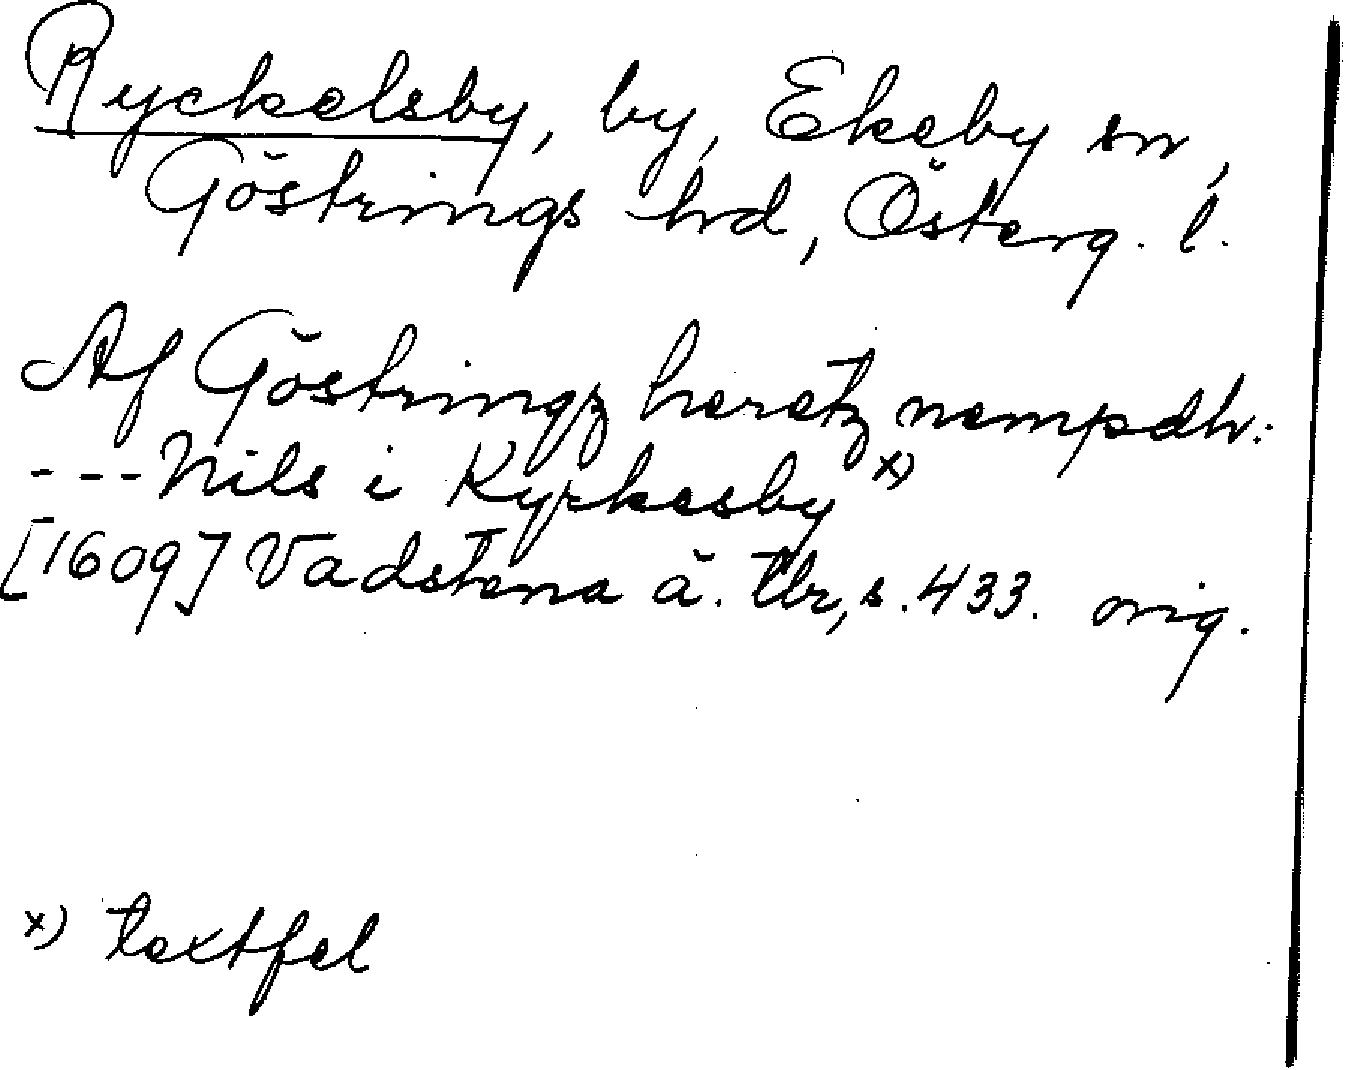 Ryckelsby, by, Ekeby sn,
Göstrings hrd, Österg. l.
Af Göstringz heretz nempdh:
--- Nils i Kyrkesby x)
[1609] Vadstena ä. tbr, s. 433. orig.
x) textfel